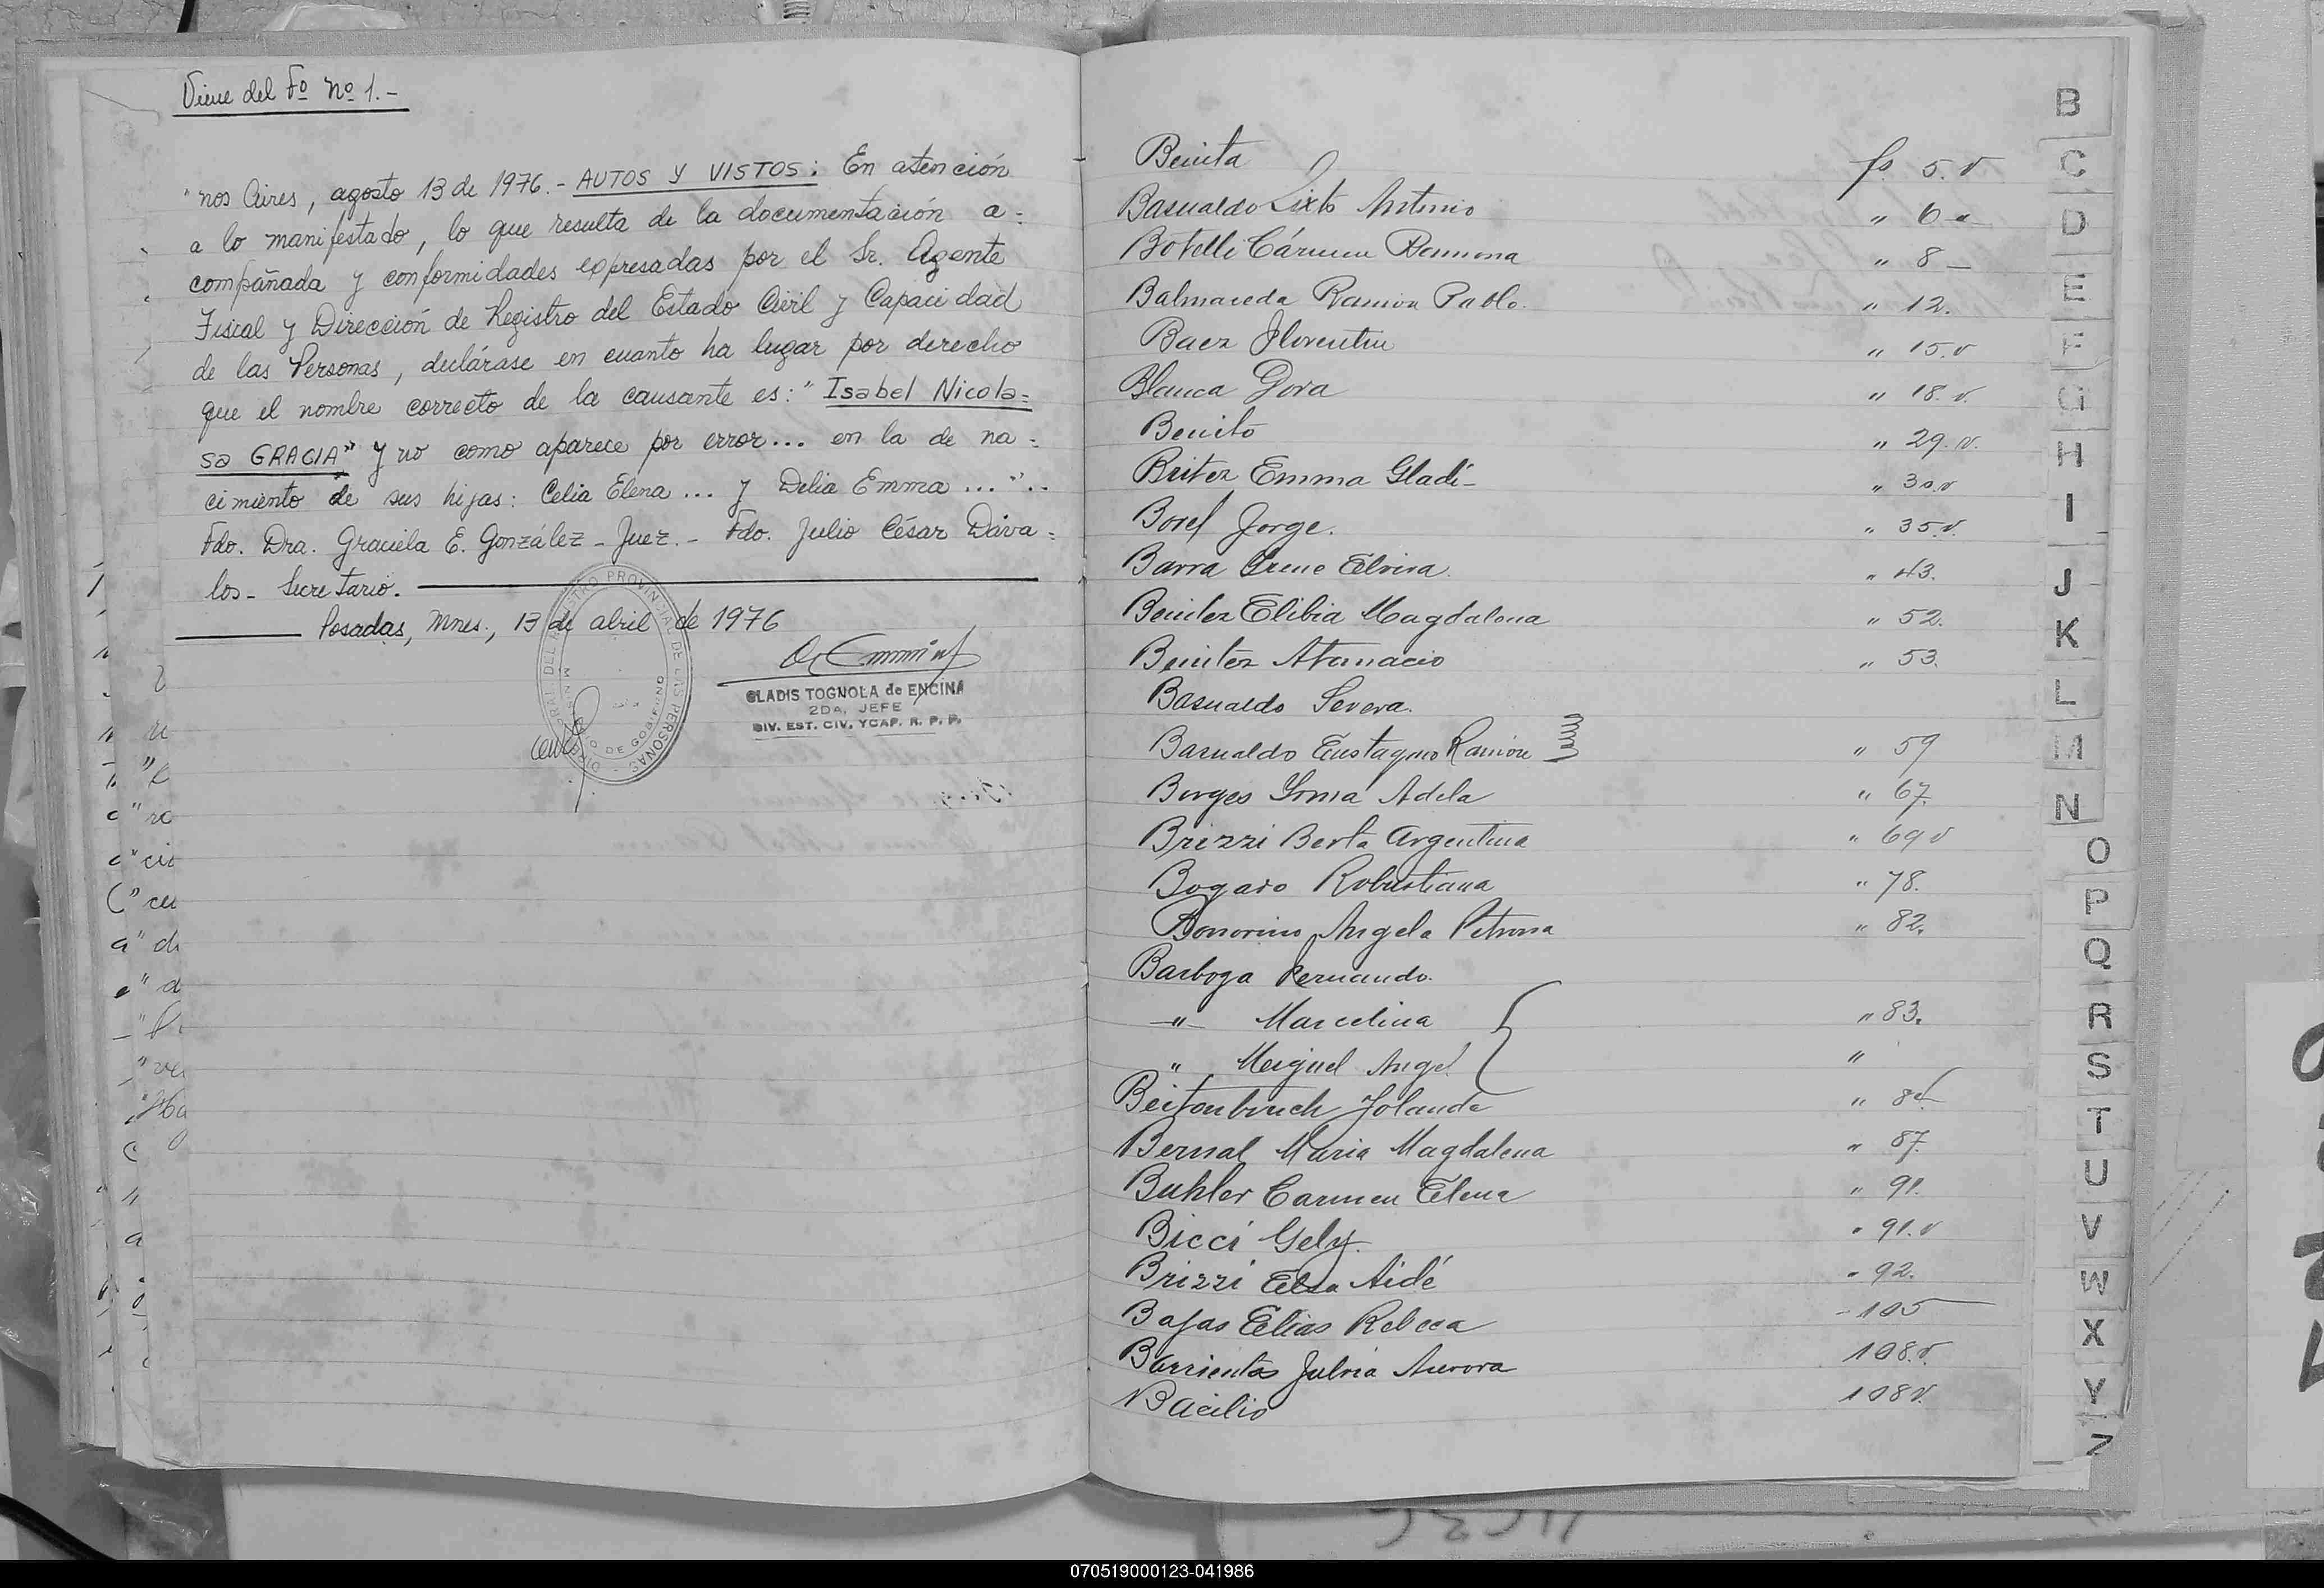 Viene del Fº Nº 1.-
"nos Aires, agosto 13 de 1976.- AUTOS Y VISTOS: En atención
a lo manifestado, lo que resulta de la documentación a=
compañada y conformidades expresadas por el Sr. Agente
Fiscal y Dirección de Registro del Estado Civil y Capacidad
de las Personas, declárase en cuanto ha lugar por derecho
que el nombre correcto de la causante es: "Isabel Nicola=
sa GRACIA" y no como aparece por error... en la de na=
cimiento de sus hijas: Celia Elena ... y Delia Emma ..."..
Fdo. Dra. Graciela E. González - Juez.- Fdo. Julio César Dáva=
los- Secretario.
Posadas, Mnes., 13 de abril de 1976
GLADIS TOGNOLA de ENCINA
2DA. JEFE
DIV. EST. CIV. YCAP. R. P. P.
Benita fs 5.v
Basualdo Sixto Antonio " 6
Botelli Cármen Ramona " 8 -
Balmaceda Ramon Pablo. " 12.
Baez Florentin " 15.v
Blanca Dora " 18.v.
Benito " 29.v.
Britez Emma Gladi- " 30.v
Boref Jorge. " 35.v.
Barra Irene Elvira. " 43.
Benitez Elibia Magdalena " 52.
Benitez Atanacio " 53.
Basualdo Severa.
Basualdo Eustaquio Ramón " 59
Borges Sonia Adela " 67.
Brizzi Berta Argentina " 69 v
Bogado Robustiana " 78.
Bonorino Angela Petrona " 82.
Barboza Fernando.
-"- Marcelina " 83.
" Meiguel Angel "
Jolanda "
Bernal Maria Magdalena " 87.
Buhler Carmen Elena " 91.
Bicci Gely. " 91.v
Brizzi Elsa Aidé " 92.
Bajas Elias Rebeca - 105
Barrientos Julvia Aurora 108.v.
Bacilio 108 v.
B
C
D
E
F
G
H
I
J
K
L
M
N
O
P
Q
R
S
T
U
V
W
X
Y
Z
070519000123-041986